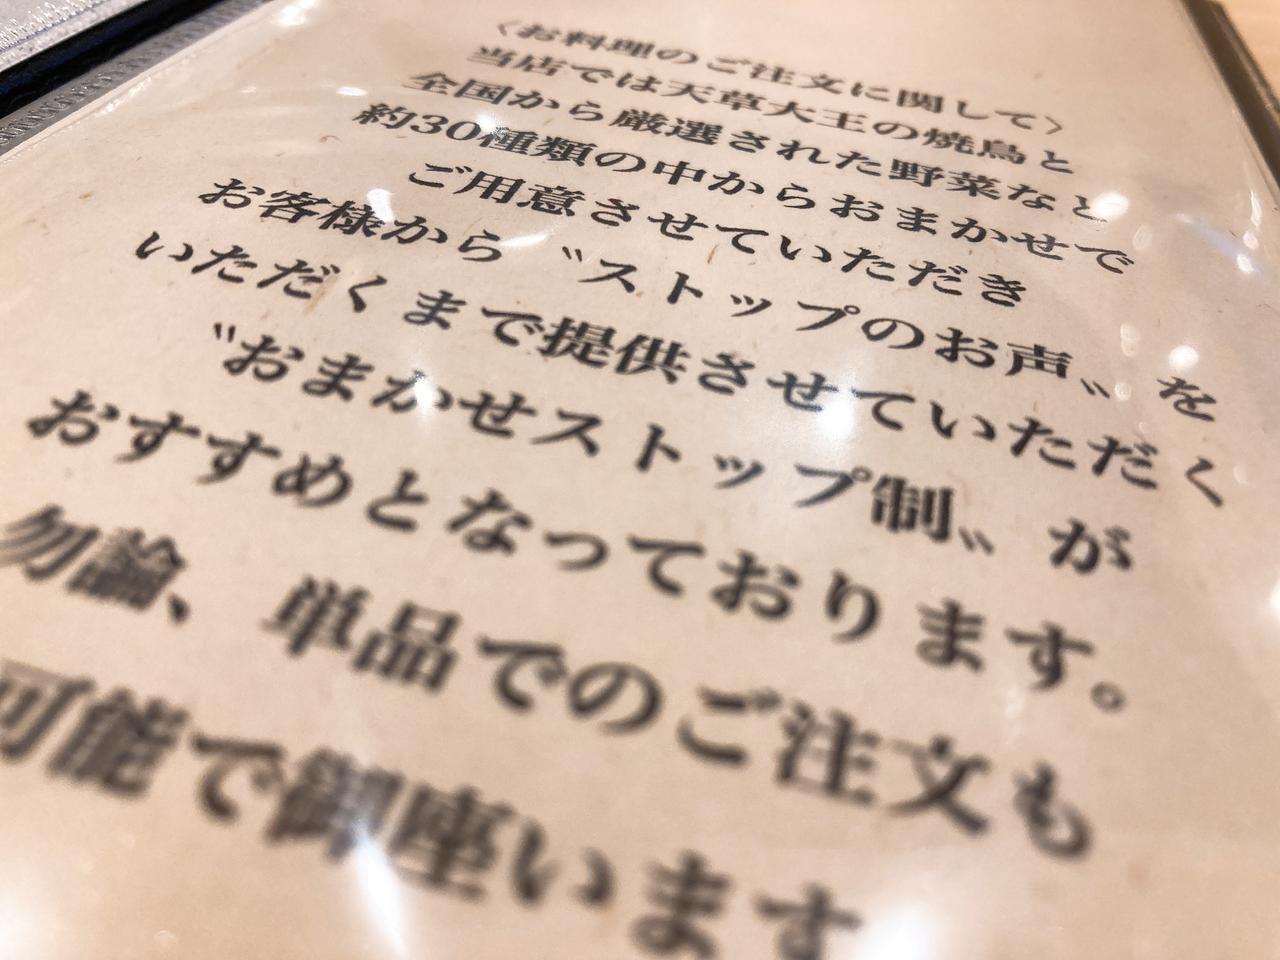 〈お料理のご注文に関して〉
当店では天草大王の焼鳥と
全国から厳選された野菜など
約30種類の中からおまかせで
ご用意させていただき
お客様から〝ストップのお声〟を
いただくまで提供させていただく
〝おまかせストップ制〟が
おすすめとなっております。
勿論、単品でのご注文も
可能で御座います